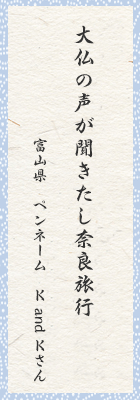 大仏の声が聞きたし奈良旅行
富山県　ペンネーム　K and Kさん